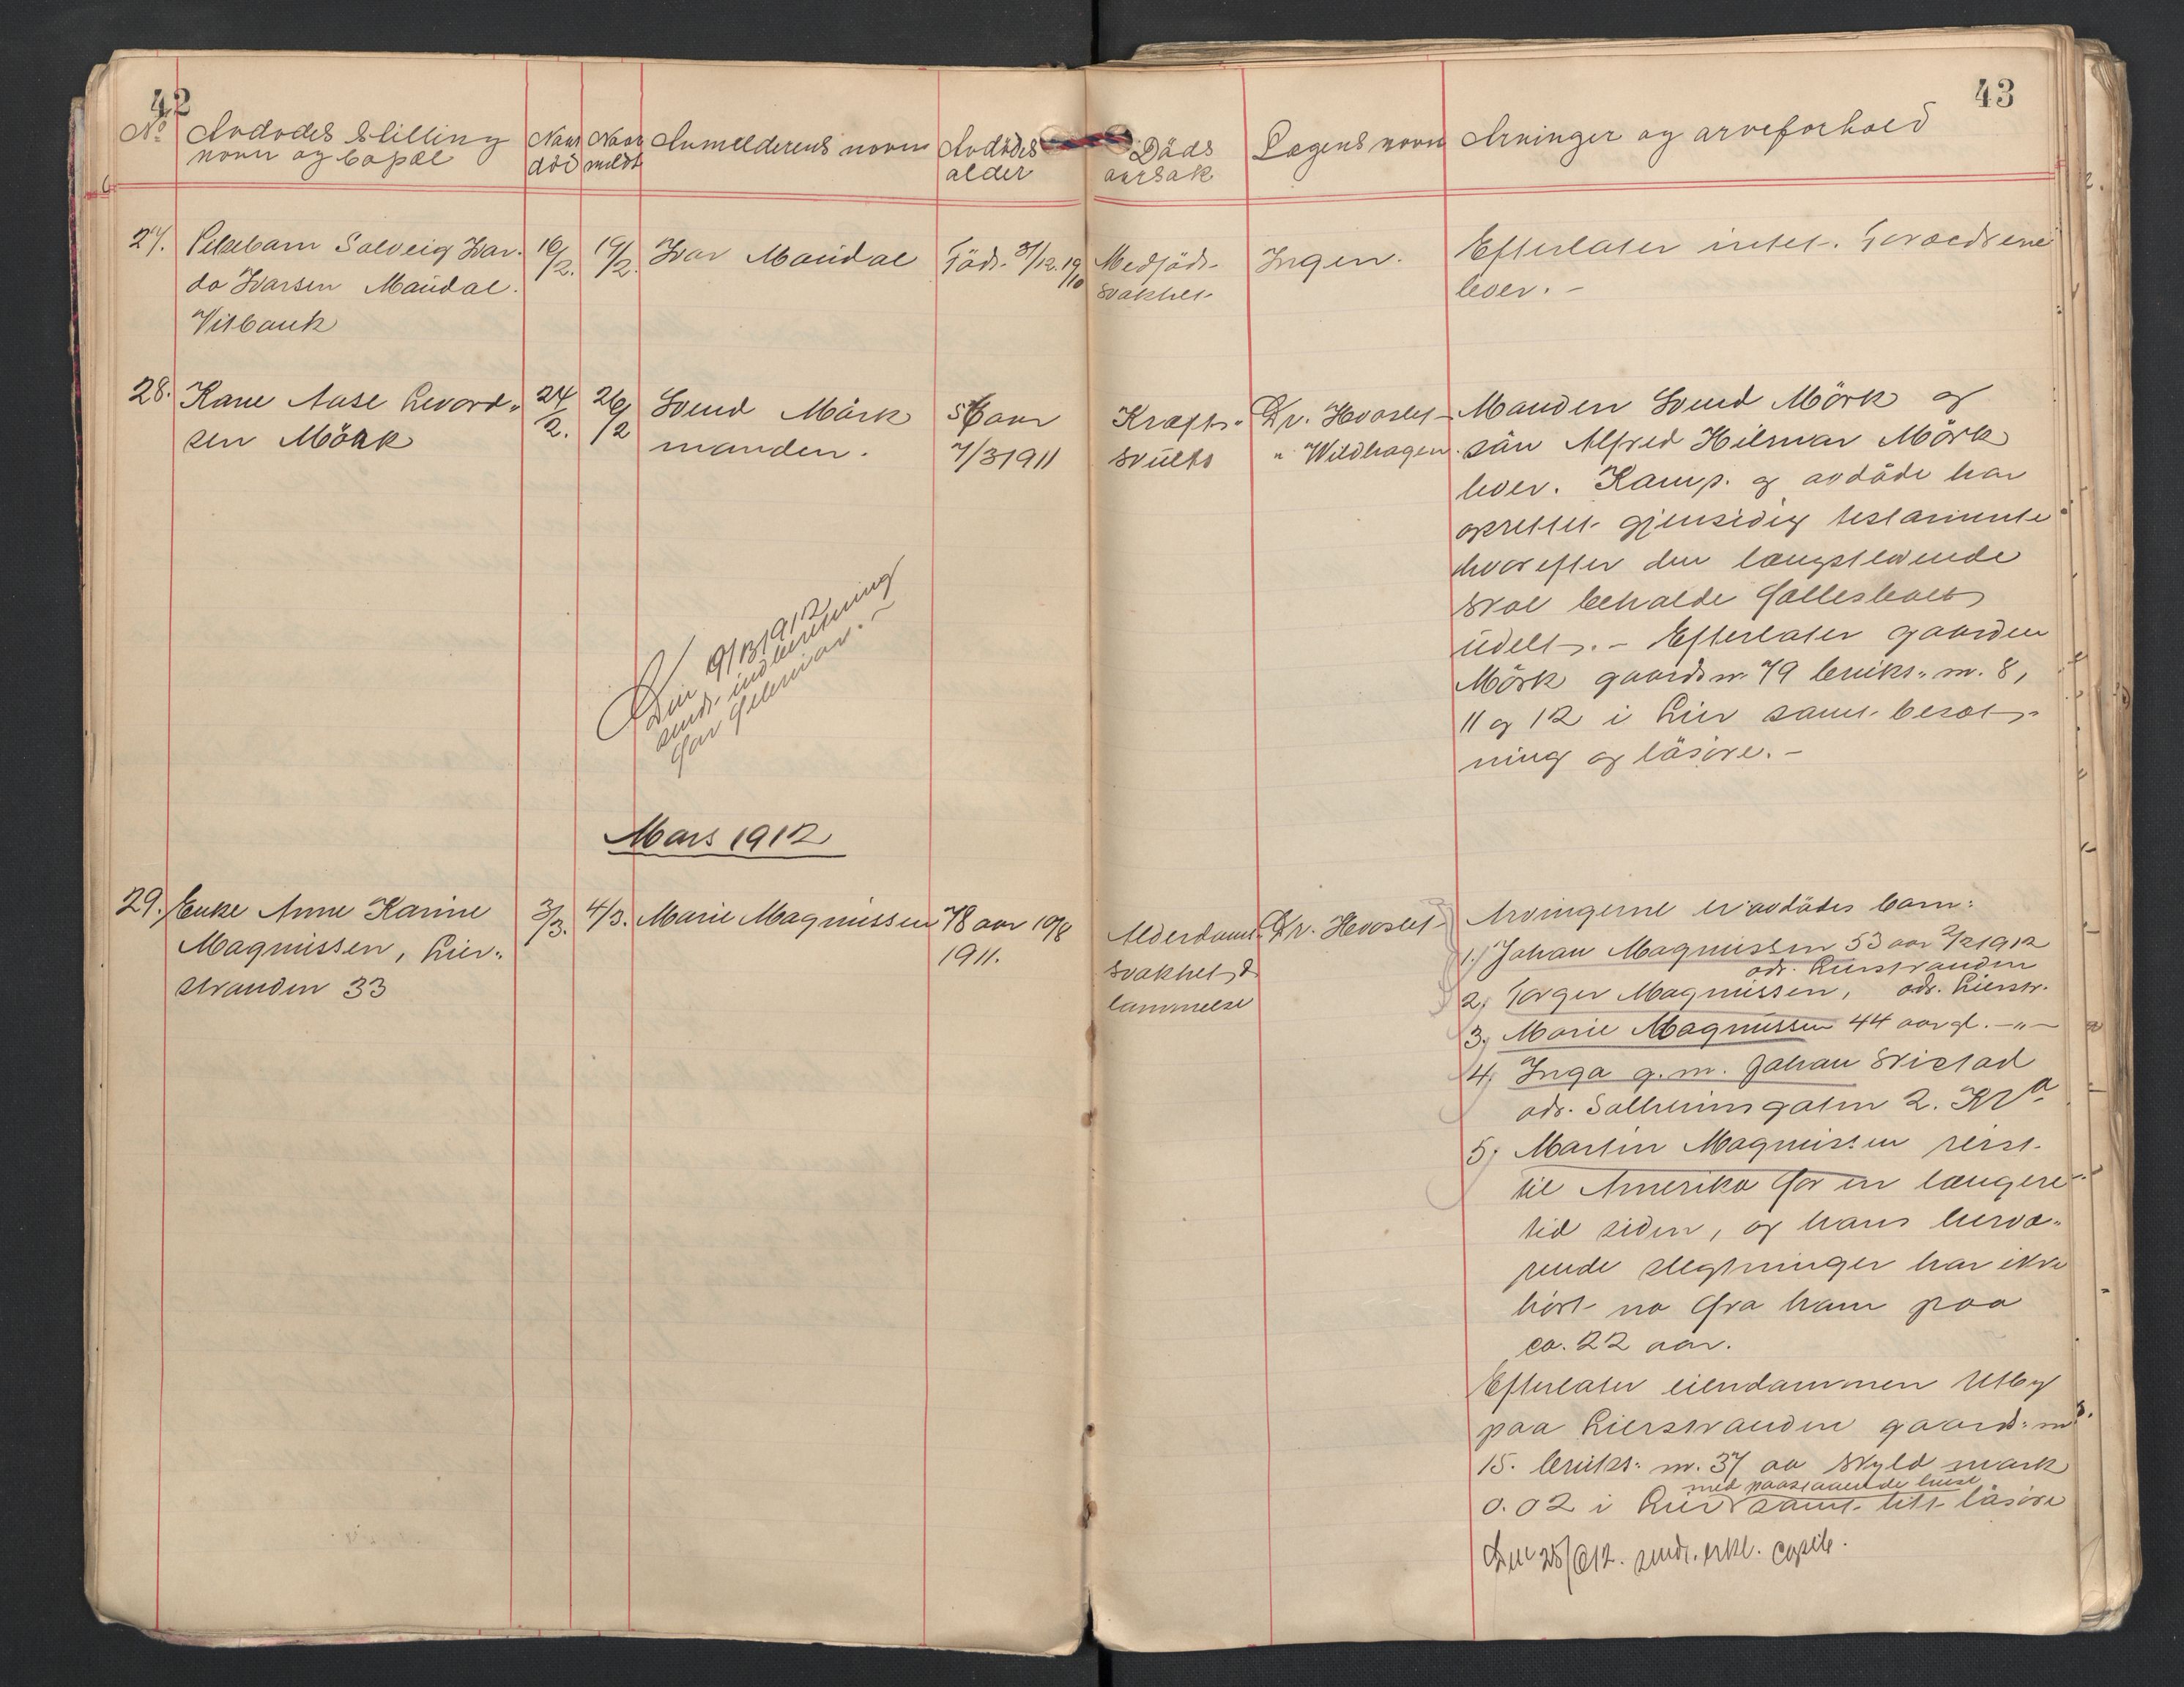 42
43
No Avdødes Stilling
navn og bopæl
Naar
død
Naar
meldt
Anmelderens navn
Avdødes
alder
Døds
aarsak
Lægens navn
Arvinger og arveforhold
27. Pikebarn Solveig Ivar-
da Ivarsen Maudal.
Vitbank
16/2.
19/2.
Ivar Maudal
Född. 31/12.1910
Medfödt
svakhet
Ingen.
Efterlater intet. Foreldrene
lever. -
28. Kare Aase Levord-
sen Mörk
24/2.
26/2
Svend Mörk
manden.
56 aar
7/3 1911
Kræft-
svulst
Dr. Hvoslef
" Wildhagen.
Manden Svend Mörk og
sön Alfred Hilmar Mörk
lever. Komp. og avdöde har
oprettet gjensidig testamente
hvorefter den længstlevende
skal beholde fællesboet
udelt. - Efterlater gaarden
Mörk gaardsnr. 79 bruks-nr. 8,
11 og 12 i Lier samt besæt-
ning og lösöre. -
Den 9/3 1912
sendt indberetning
for februar. -
Mars 1912
29. Enke Anne Karine
Magnussen, Lier-
stranden 33
3/3.
4/3.
Marie Magnussen
78 aar 10/8
1911.
Alderdoms-
svakhet &
lammelse
Dr. Hvoslef
Arvingerne er avdödes barn:
1.) Johan Magnussen 53 aar 2/2 1912
adr. Lierstranden
2, Torger Magnussen, adr. Lierstr.
3, Marie Magnussen 44 aar gl. -"-
4, Inga g. m. Johan Skistad
adr. Solheimsgaten 2. Kra
5, Martin Magnussen reist
til Amerika for en længere
tid siden, og hans hervæ-
rende slegtninger har ikke
hört no fra ham paa
ca. 22 aar.
Efterlater eiendommen Utby
paa Lierstranden gaards-nr.
15. bruks-nr. 37 av skyld mark
med paastaaende huse
0.02 i Lier samt litt lösöre
Den 25/6 12. sendt. erkl. capit.